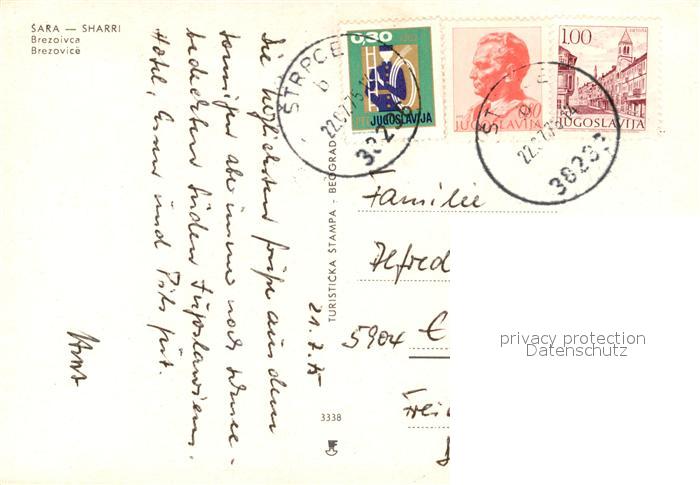 ŠARA — SHARRI
Brezoivca
Brezovicë
Die herzlichsten Grüße aus dem
sonnigen aber immer noch schnee-
bedeckten Süden Jugoslawiens.
Hotel, Essen und Pisten gut.
Horst
21.7.75
TURISTIČKA ŠTAMPA - BEOGRAD
3338
0,30
JUGOSLAVIJA
JUGOSLAVIJA
1.00
JUGOSLAVIJA
ŠTRPCE
b
22.07.75
38236
22.07.75
Familie
Alfred
5904
privacy protection
Datenschutz